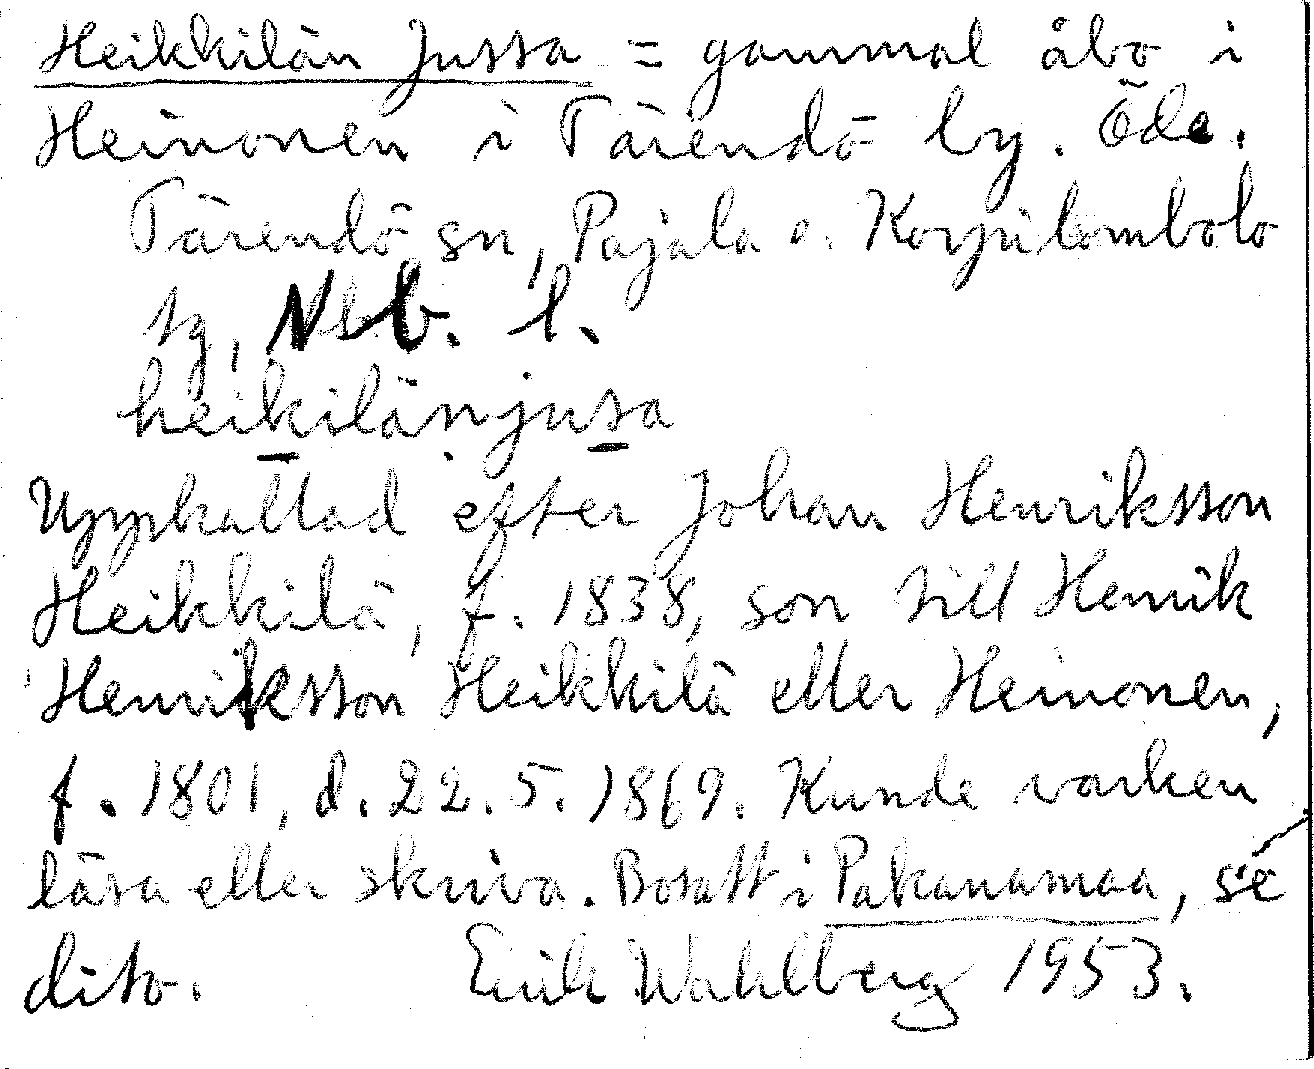 Heikkilän Jussa = gammal åbo i
Heinonen i Tärendö by. Öde.
Tärendö sn, Pajala o. Korpilombolo
tg, Nbb. l.
heikilänjusa
Uppkallad efter Johan Henriksson
Heikkilä, f. 1838, son till Henrik
Henriksson Heikkilä eller Heinonen,
f. 1801, d. 22.5.1869. Kunde varken
läsa eller skriva. Bosatt i Pakanamaa, se
dito. Erik Wahlberg 1953.